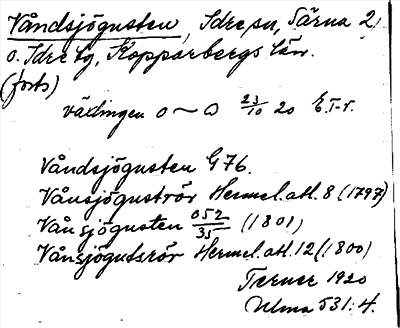 Våndsjögusten, Idre sn, Särna 2,
o. Idre tg, Kopparbergs län.
(forts)
växlingen o ~ a 23/10 20 E.T-r.
Våndsjögusten G76.
Vånsjöguströr Hermel. atl. 8 (1797)
Vånsjögusten 052/35 (1801)
Vånsjögutsrör Hermel. atl. 12 (1800)
Terner 1920
Ulma 531:4.